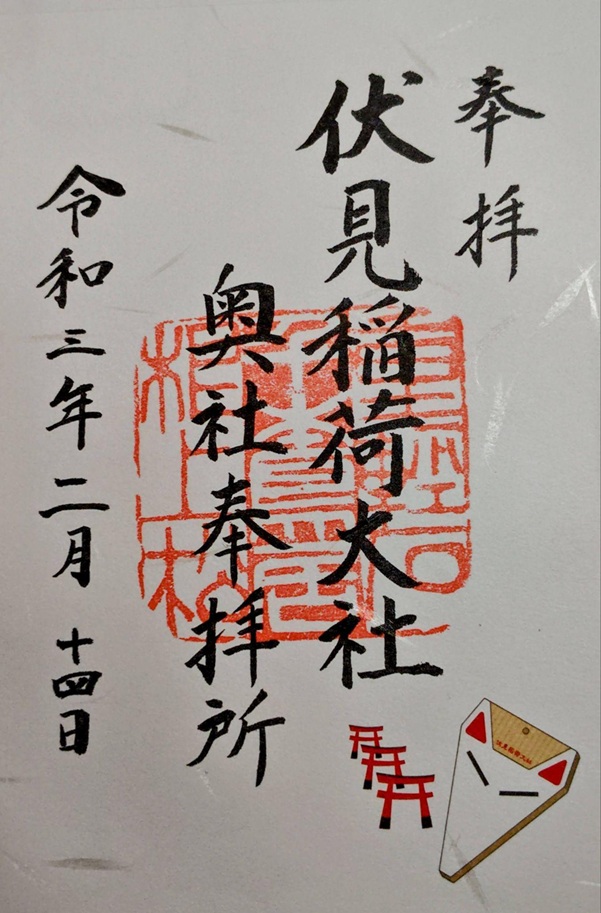 奉拝
伏見稲荷大社
奥社奉拝所
令和三年二月十四日
伏見稲荷大社